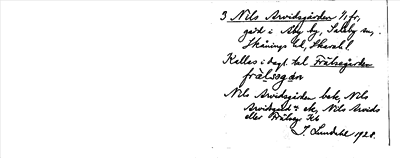 3 Nils Arvidsgården 1/1 fr,
gård i Aby by, Saleby sn,
Skånings hd, Skarab. l
Kallas i dagl. tal Frälsegården
frälsegården
Nils Arvidsgården bet, Nils
Arvidsgård ek, Nils Arvids
eller Frälseg
J. Lundahl 1920.